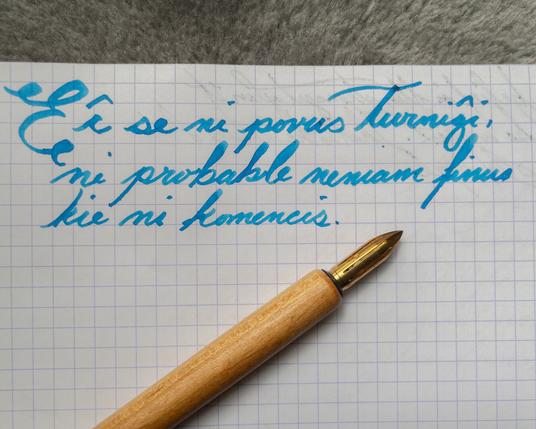 Eĉ se ni povus Turniĝi,
ni probable neniam finus
kie ni komencis.